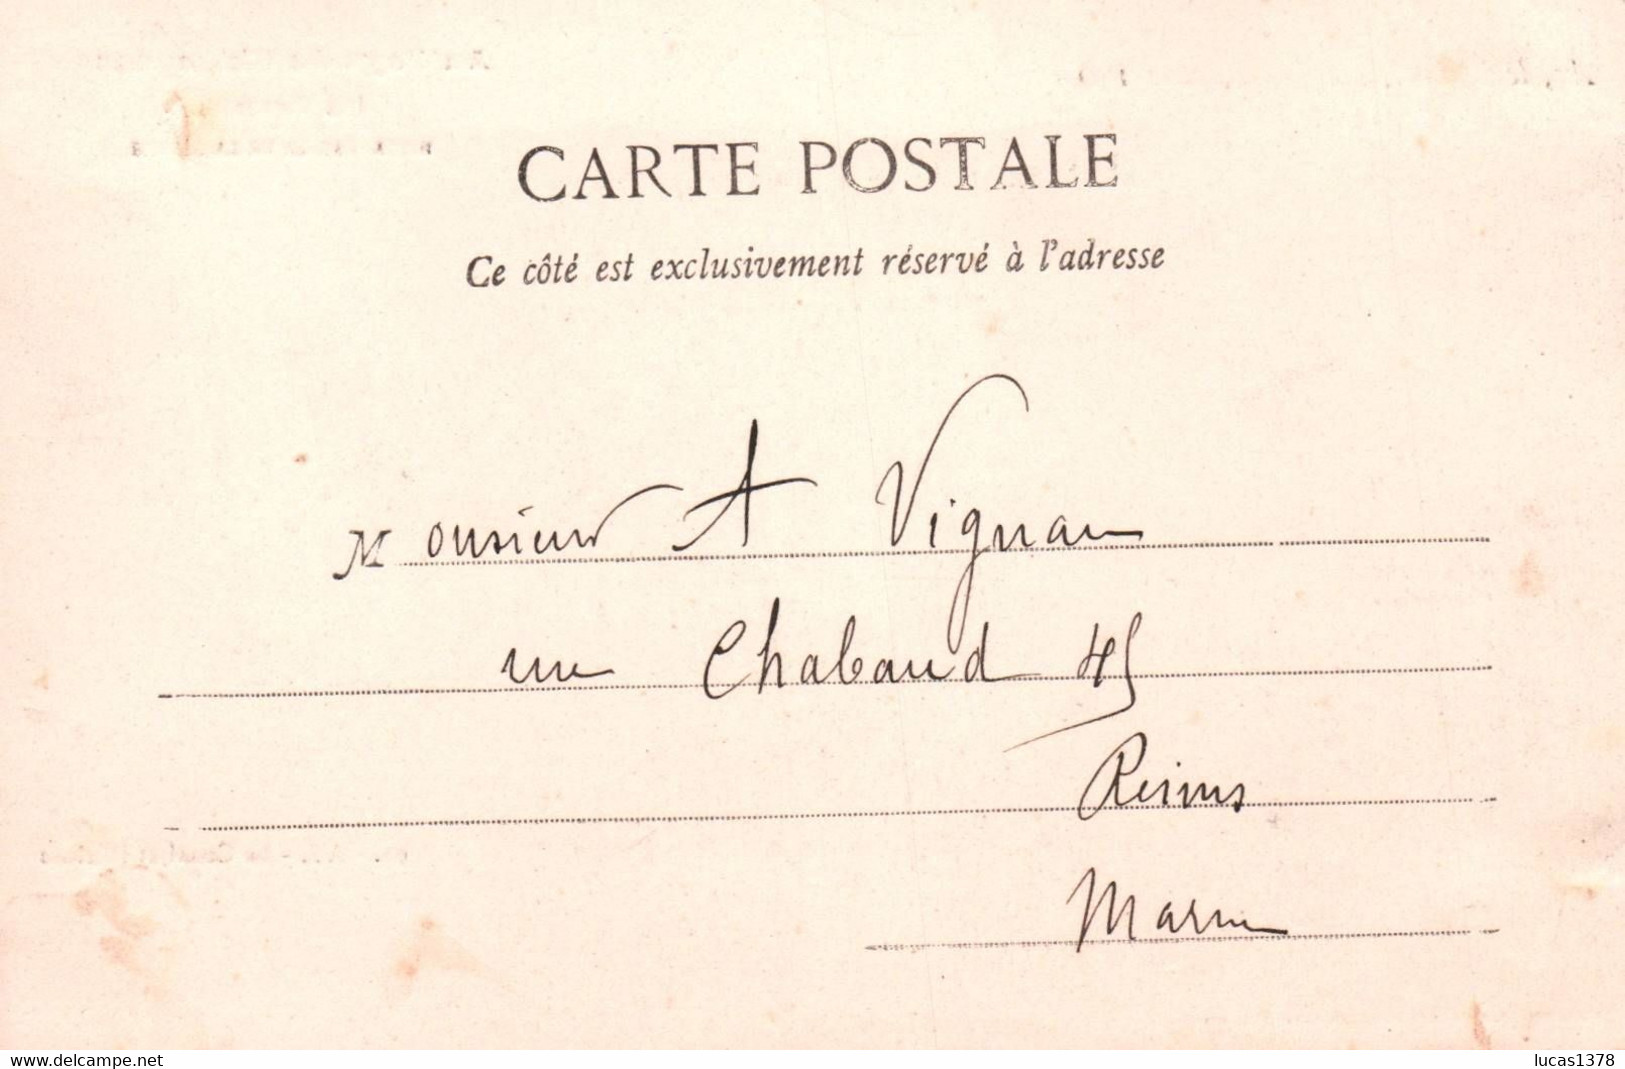 CARTE POSTALE
Ce côté est exclusivement réservé à l'adresse
Monsieur A Vignau
rue Chabaud 45
Reims
Marne
delcampe.net
lucas1378